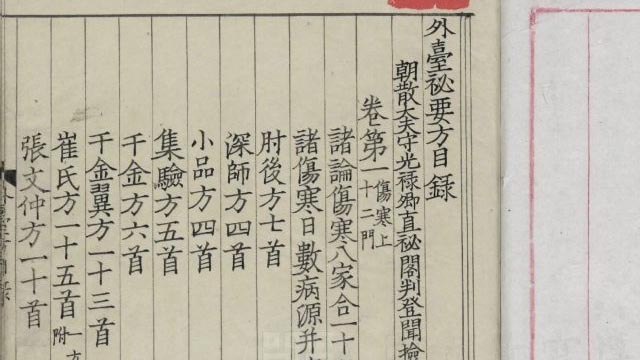 外臺祕要方目錄
朝散大夫守光祿卿直祕閣判登聞撿
卷第一 傷寒上 十二門
諸論傷寒八家合一十
諸傷寒日數病源并
肘後方七首
深師方四首
小品方四首
集驗方五首
千金方六首
千金翼方一十三首
崔氏方一十五首 附一方
張文仲方一十首